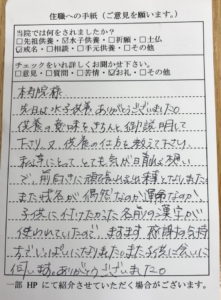 住職への手紙（ご意見を願います。）
当院では何をされましたか？
□先祖供養・☑水子供養・□祈願・□土仏
☑戒名・□相談・□手元供養・□その他
チェックをいれ詳しくお聞かせ下さい。
□意見・□質問・□苦情・☑お礼・□その他
様
先日は水子供養ありがとうございました。
供養の意味をきちんと御説明して
下さり、又供養の仕方も教えて下さり、
私は本当にとっても気が
で、前向きに頑張れる
また戒名が偶然なのか運命なのか、
子供に付けたかった名前の漢字が
使われていたので、ますます感謝の気持
ちでいっぱいになりました。また子供に会いに
伺います。ありがとうございました。
一部 HP にて紹介させていただく場合がございます。